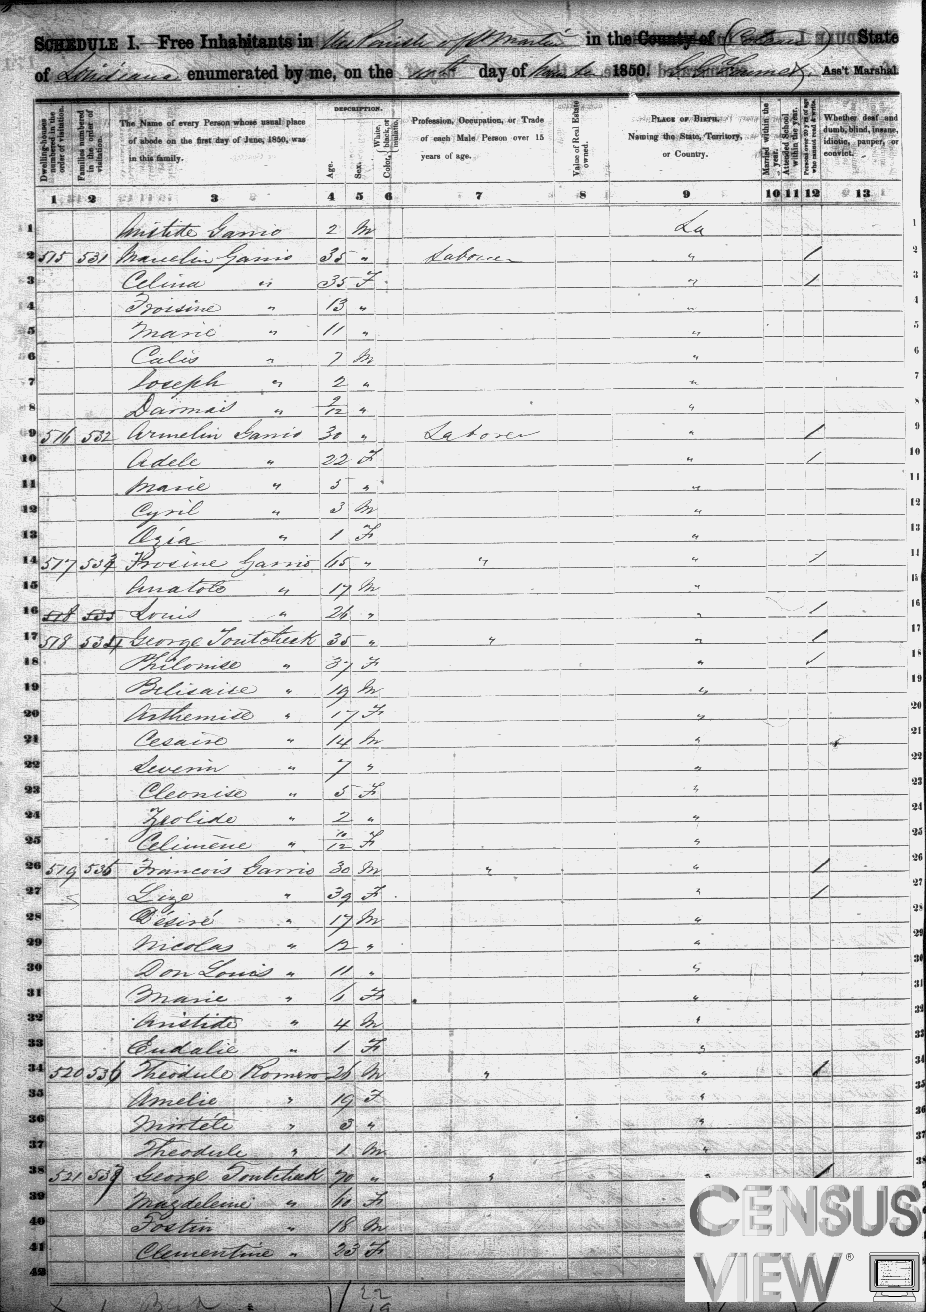 SCHEDULE I.—Free Inhabitants in the Parish of St Martin in the County of State
of Louisiana enumerated by me, on the day of 1850. Ass't Marshal.
Dwelling-houses numbered in the order of visitation.
Families numbered in the order of visitation.
The Name of every Person whose usual place of abode on the first day of June, 1850, was in this family.
DESCRIPTION.
Age.
Sex.
Color, White, black, or mulatto.
Profession, Occupation, or Trade of each Male Person over 15 years of age.
Value of Real Estate owned.
PLACE OF BIRTH. Naming the State, Territory, or Country.
Married within the year.
Attended School within the year.
Persons over 20 y'rs of age who cannot read & write.
Whether deaf and dumb, blind, insane, idiotic, pauper, or convict.
1 2 3 4 5 6 7 8 9 10 11 12 13
1 Aristide Garrio 2 M La 1
2 515 531 Marcelin Garrio 35 " Laborer " / 2
3 Celina " 35 F " / 3
4 Froisine " 13 " " 4
5 Marie " 11 " " 5
6 Calis " 7 M " 6
7 Joseph " 2 " " 7
8 Darmais " 9/12 " " 8
9 516 532 Armelin Garrio 30 " Laborer " / 9
10 Adele " 22 F " / 10
11 Marie " 5 " " 11
12 Cyril " 3 M " 12
13 Ozia " 1 F " 13
14 517 533 Frosine Garrio 65 " " " / 14
15 Anatole " 17 M " 15
16 518 535 Louis " 26 " " / 16
17 518 534 George Toutchek 35 " " " / 17
18 Philonise " 37 F " / 18
19 Belisaise " 19 M " 19
20 Arthemise " 17 F " 20
21 Cesaire " 14 M " 21
22 Severin " 7 " " 22
23 Cleonise " 5 F " 23
24 Zeolide " 2 " " 24
25 Celimène " 10/12 F " 25
26 519 535 Francois Garrio 30 M " " / 26
27 Lize " 39 F " / 27
28 Désiré " 17 M " 28
29 Nicolas " 12 " " 29
30 Don Louis " 11 " " 30
31 Marie " 6 F " 31
32 Aristide " 4 M " 32
33 Eudalie " 1 F " 33
34 520 536 Theodule Romero 26 M " " / 34
35 Amelie " 19 F " 35
36 " 3 " " 36
37 Theodule " 1 M " 37
38 521 537 George Toutchek 70 " " " / 38
39 Magdeleine " 60 F
40 Fostin " 18 M
41 Clementine " 23 F
42
CENSUS
VIEW®